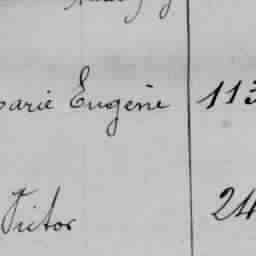 Marie Eugène 113
Victor 24